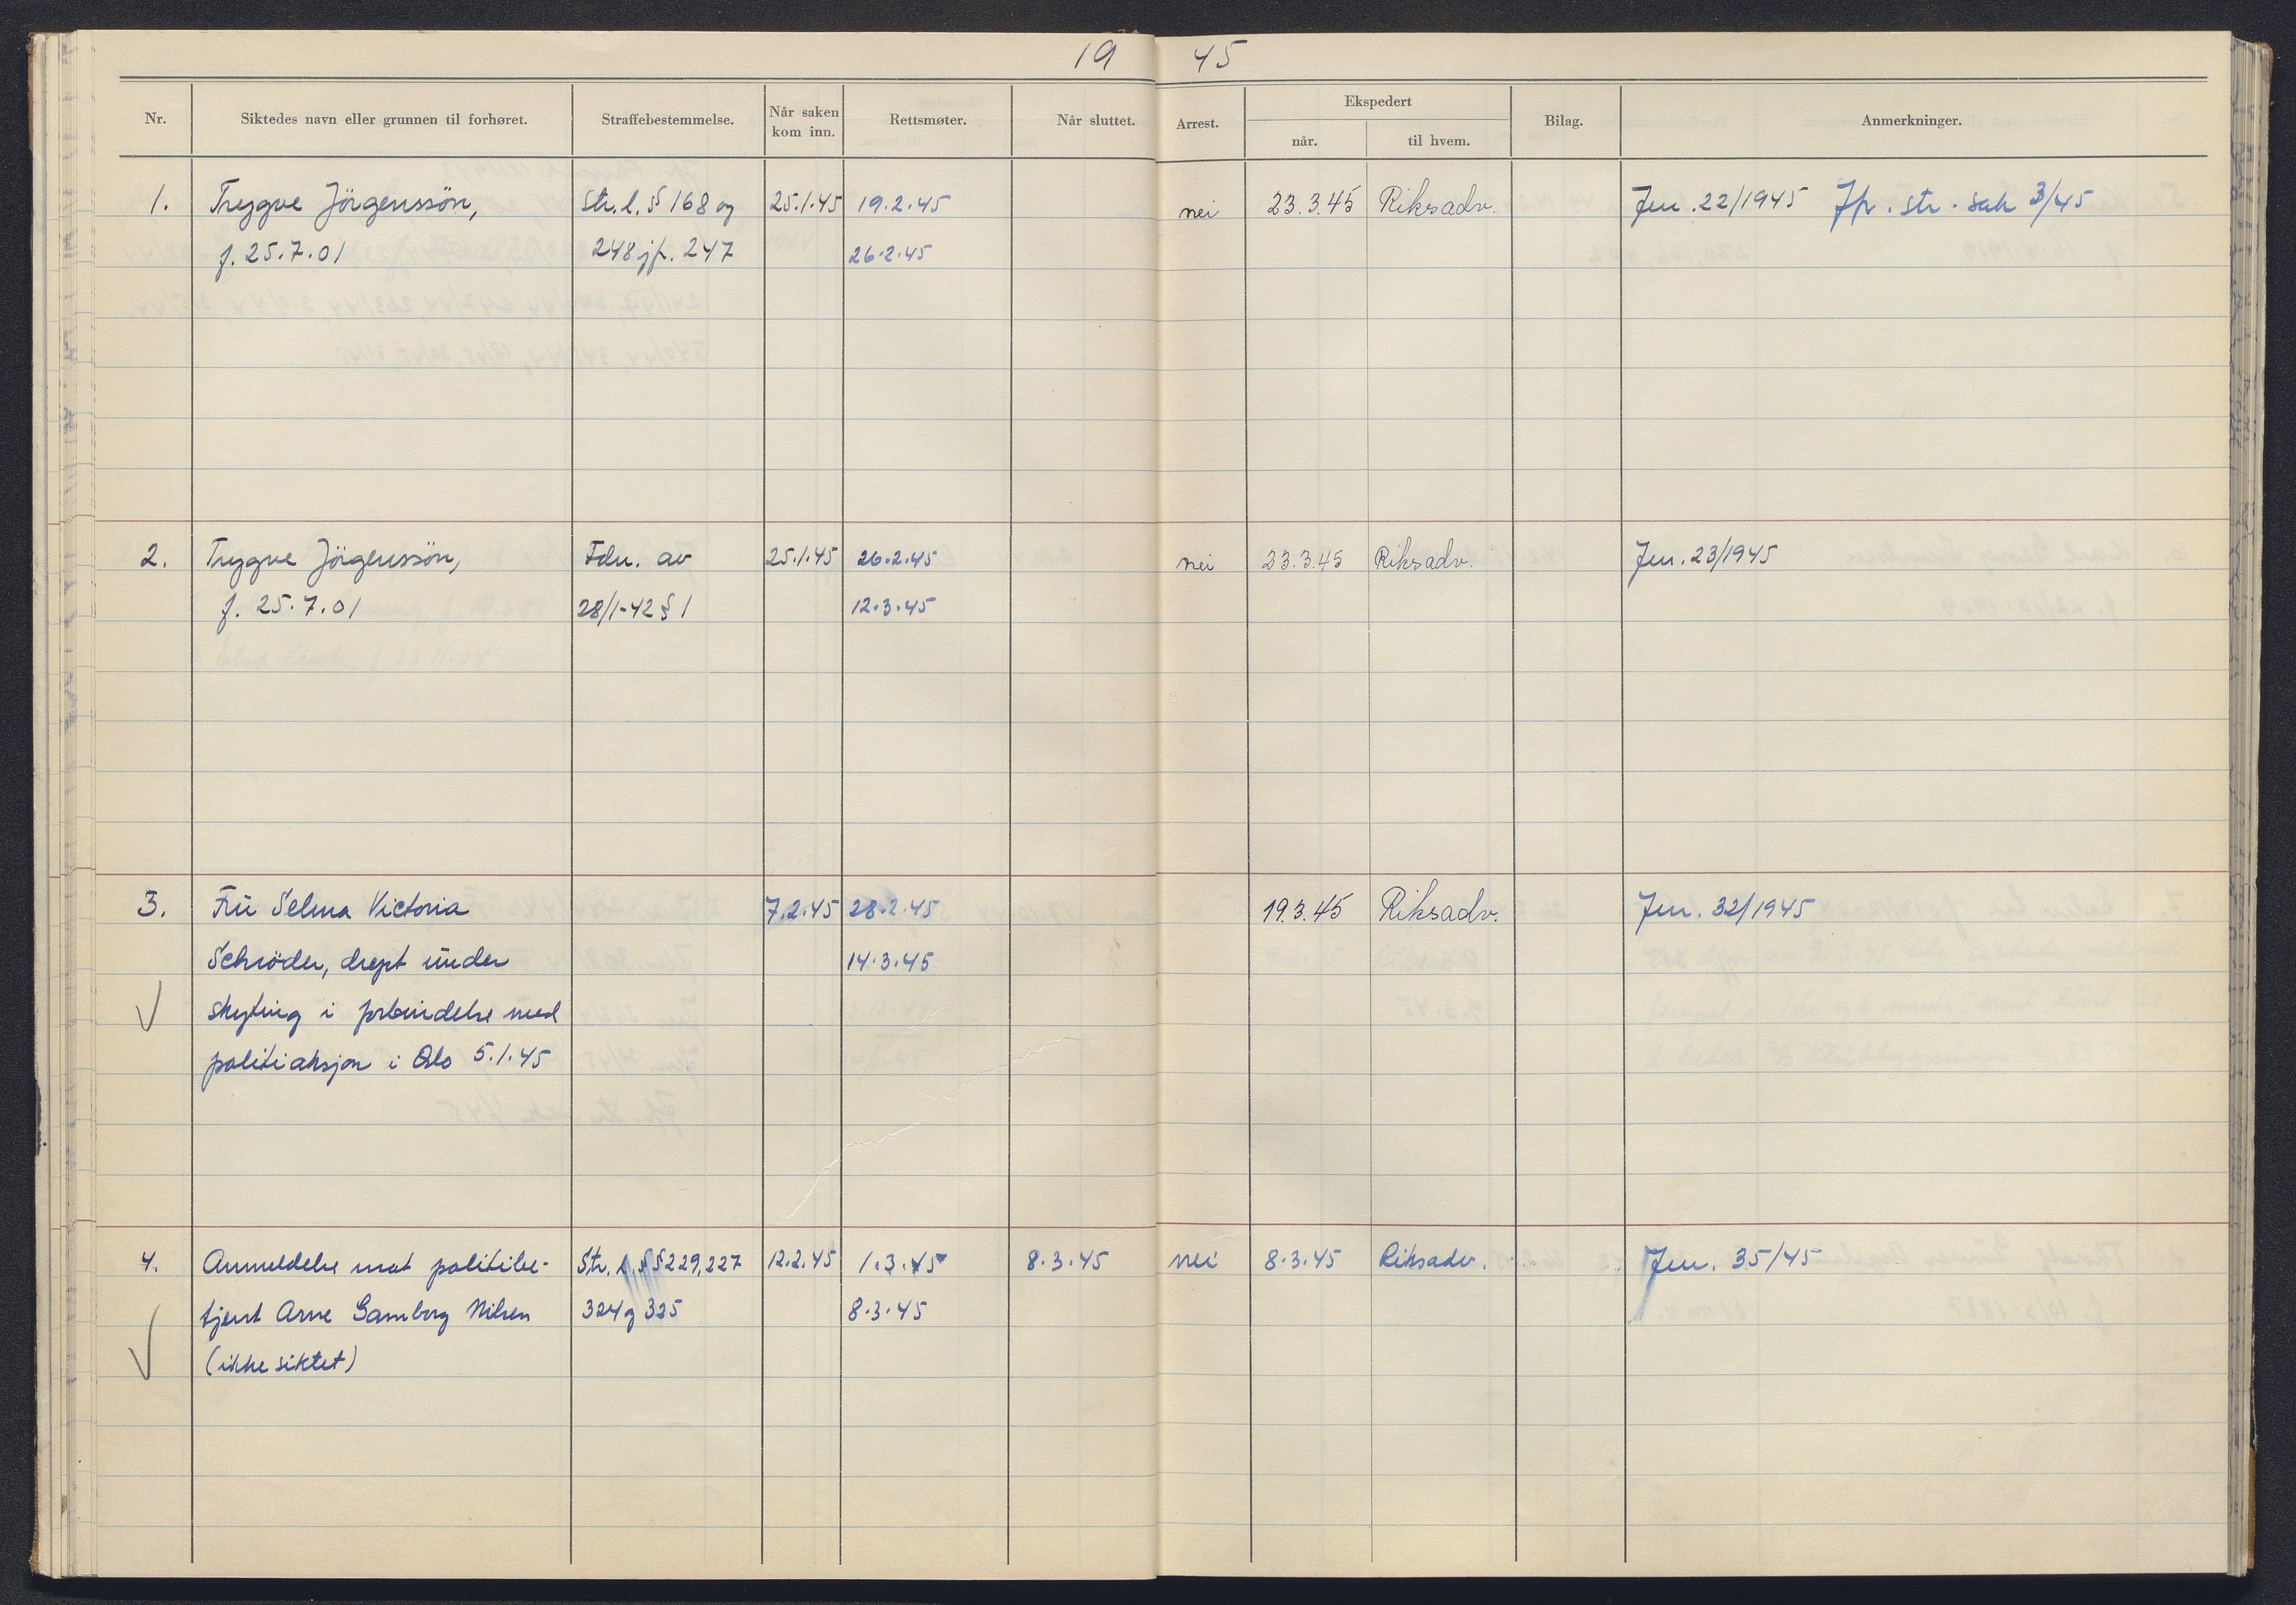 19 45
Nr. Siktedes navn eller grunnen til forhøret. Straffebestemmelse. Når saken kom inn. Rettsmøter. Når sluttet. Arrest. Ekspedert når. til hvem. Bilag. Anmerkninger.
1. Trygve Jörgenssön, Str. l. § 168 og 25.1.45 19.2.45 nei 23.3.45 Riksadv. Jnr. 22/1945 Jfr. str. sak 3/45
f. 25.7.01 248 jfr. 247 26.2.45
2. Trygve Jörgenssön, Fdn. av 25.1.45 26.2.45 nei 23.3.45 Riksadv. Jnr. 23/1945
f. 25.7.01 28/1-42 § 1 12.3.45
3. Fru Selma Victoria 7.2.45 28.2.45 19.3.45 Riksadv. Jnr. 32/1945
Schröder, drept under 14.3.45
skyting i forbindelse med
politiaksjon i Oslo 5.1.45
4. Anmeldelse mot politibe- Str. l. §§ 229, 227 12.2.45 1.3.45 8.3.45 nei 8.3.45 Riksadv. Jnr. 35/45
tjent Arne Gamborg Nilsen 324 og 325 8.3.45
(ikke siktet)